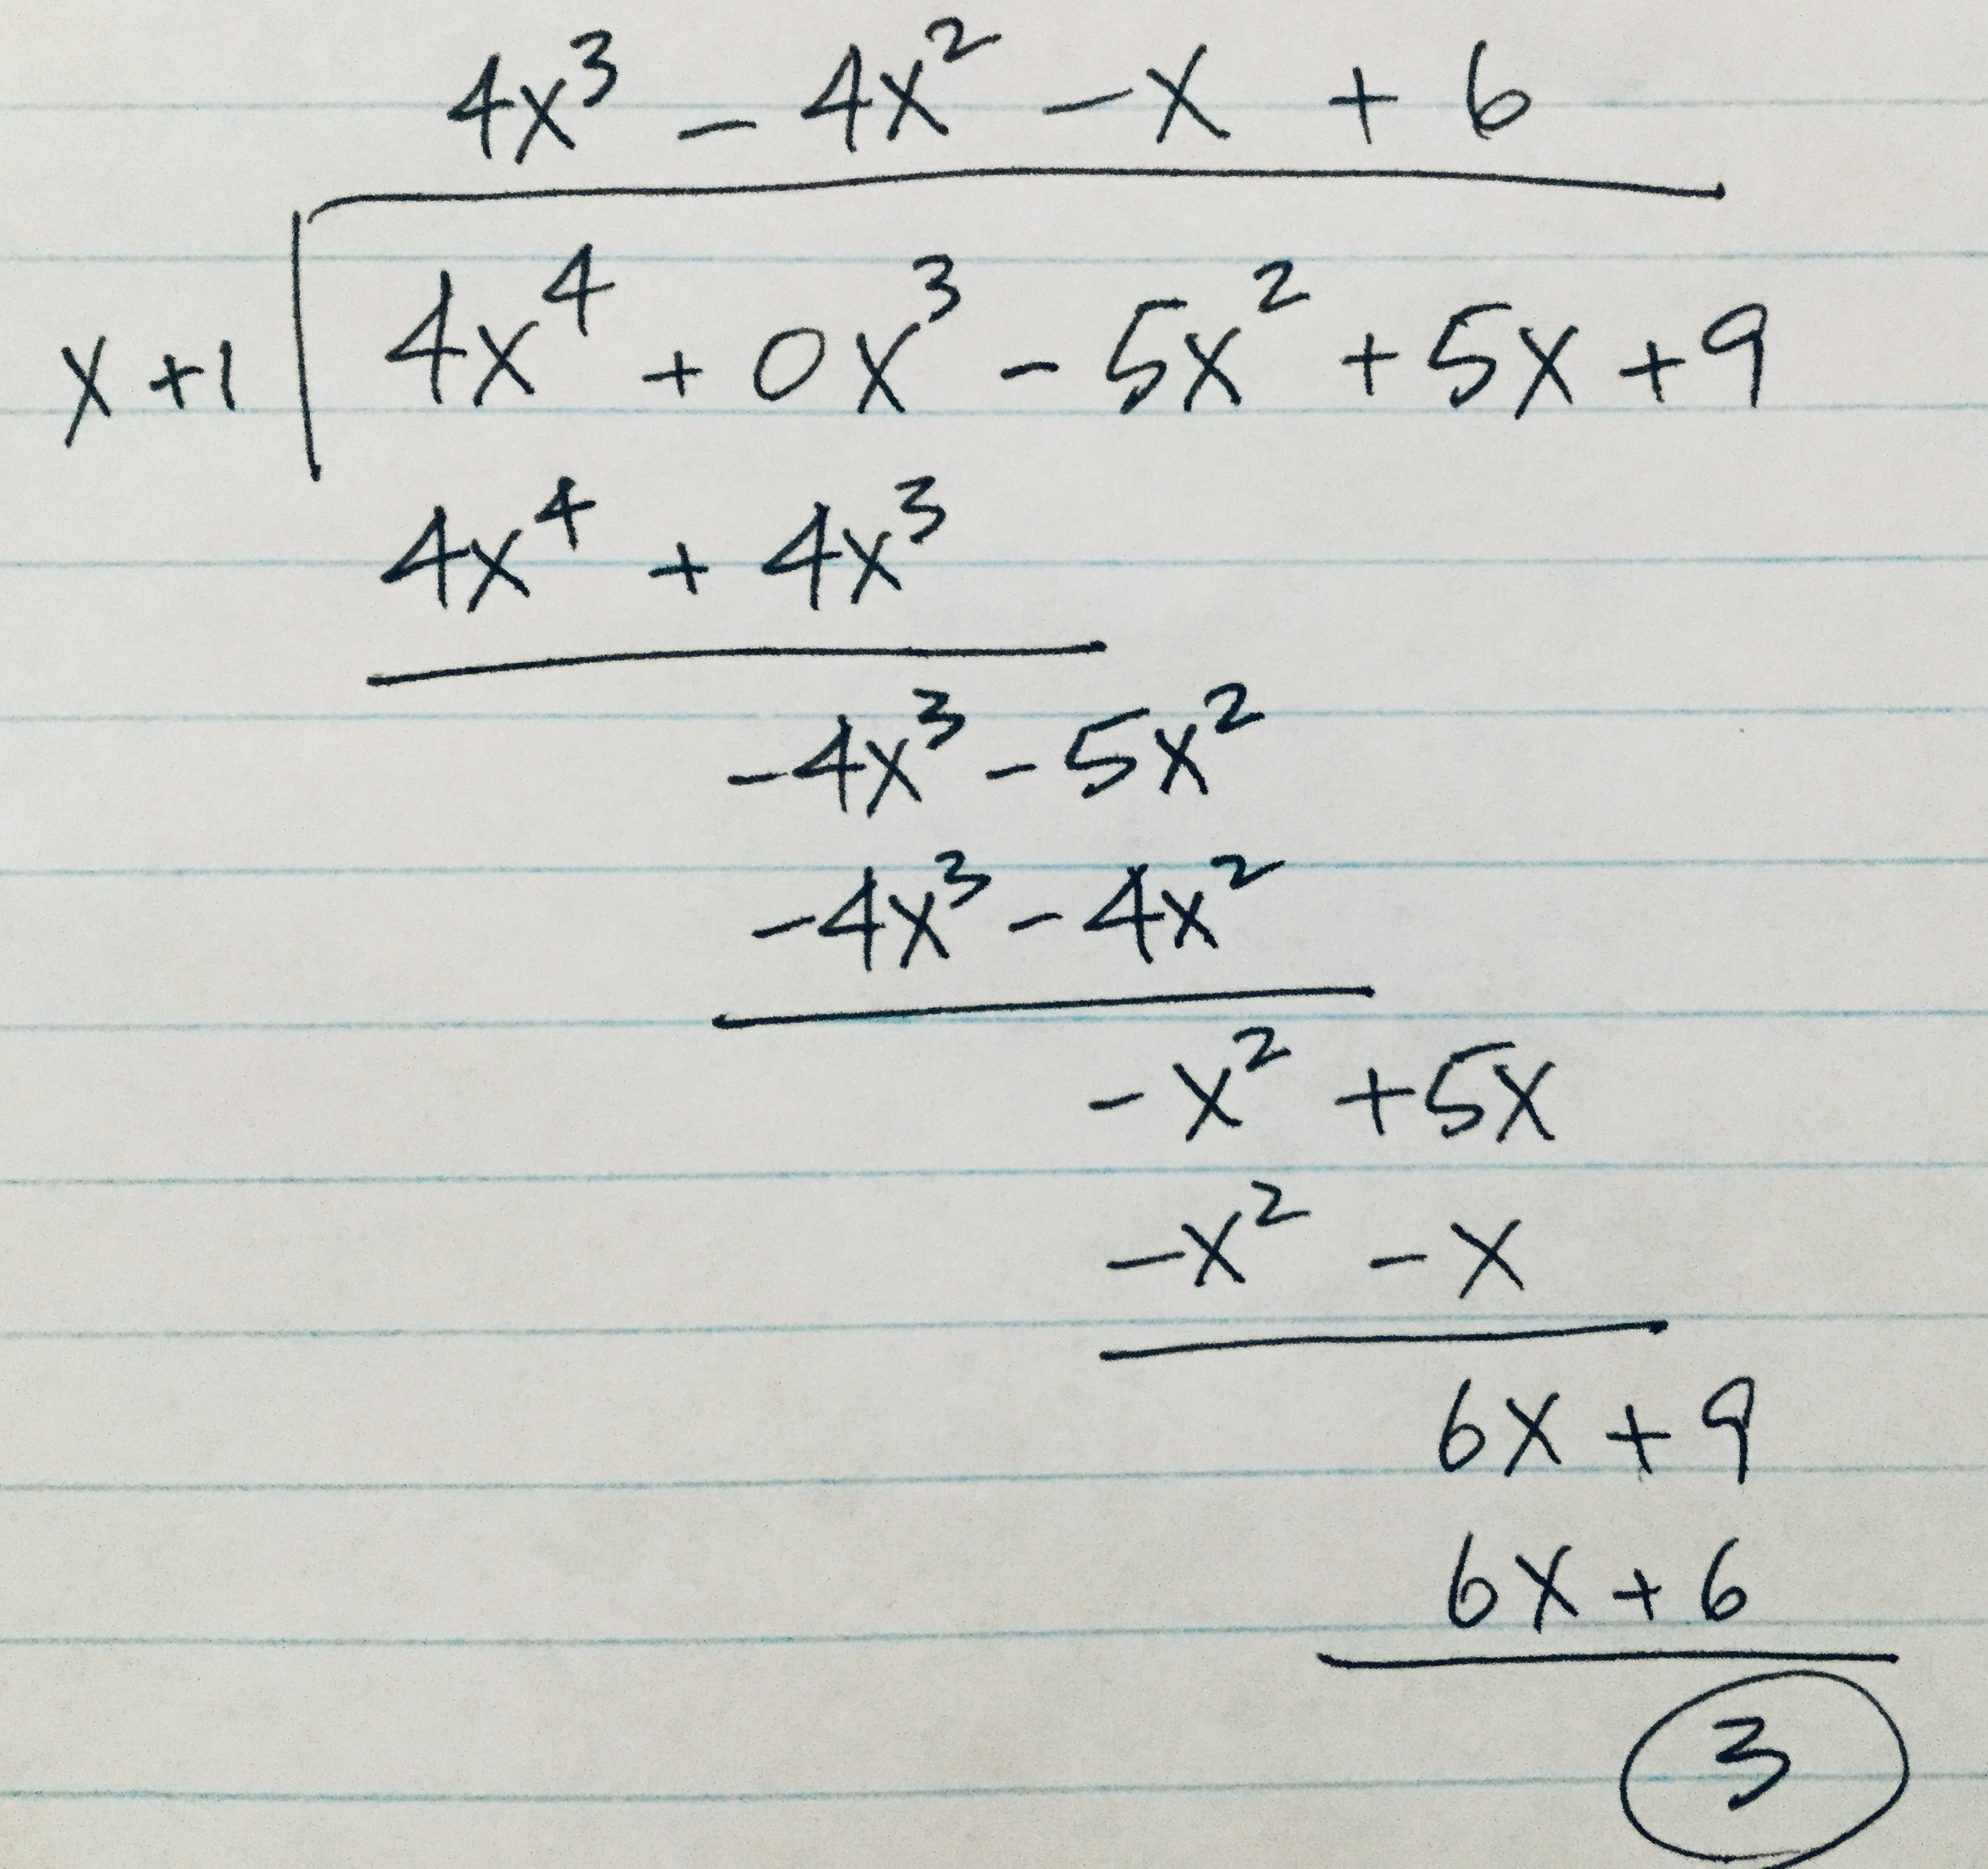 4x³ - 4x² - x + 6
x + 1 4x⁴ + 0x³ - 5x² + 5x + 9
4x⁴ + 4x³
-4x³ - 5x²
-4x³ - 4x²
-x² + 5x
-x² - x
6x + 9
6x + 6
3